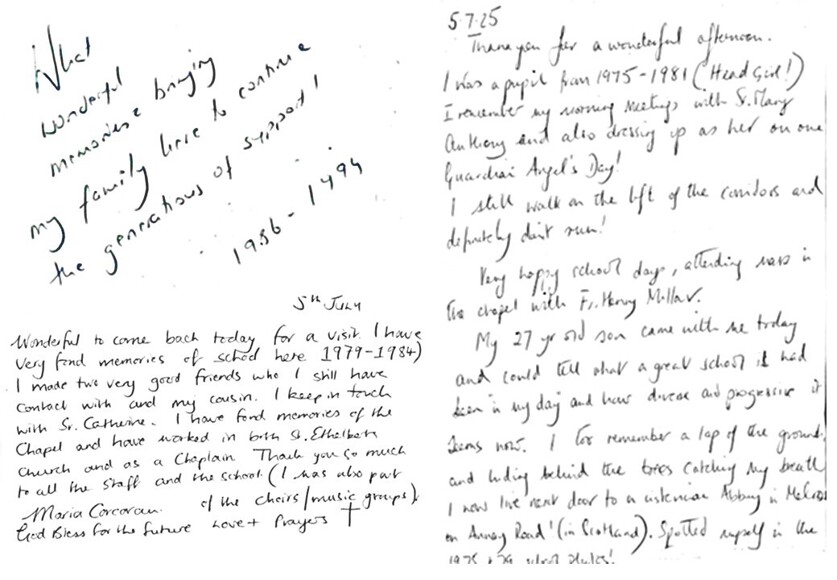 What
wonderful
memories bringing
my family here to continue
the generations of support!
1986 - 1994
5th July
Wonderful to come back today for a visit. I have
very fond memories of school here 1979-1984)
I made two very good friends who I still have
contact with and my cousin. I keep in touch
with Sr. Catherine. I have fond memories of the
Chapel and have worked in both St. Ethelberts
Church and as a Chaplain Thank you so much
to all the staff and the school. (I was also part
of the choirs/music groups).
Maria Corcoran
God Bless for the future Love + Prayers
5.7.25
Thank you for a wonderful afternoon.
I was a pupil from 1975-1981 (Head Girl!)
I remember my morning meetings with Sr. Mary
Anthony and also dressing up as her on one
Guardian Angel's Day!
I still walk on the left of the corridors and
definitely don't run!
Very happy school days, attending mass in
the chapel with Fr. Henry
My 27 yr old son came with me today
and could tell what a great school it had
been in my day and how diverse and progressive it
seems now. I too remember a lap of the grounds
and hiding behind the trees catching my breath
I now live next door to a Abbey in Melrose
on Road! (in Scotland). Spotted myself in the
1975 + 79 school photos!